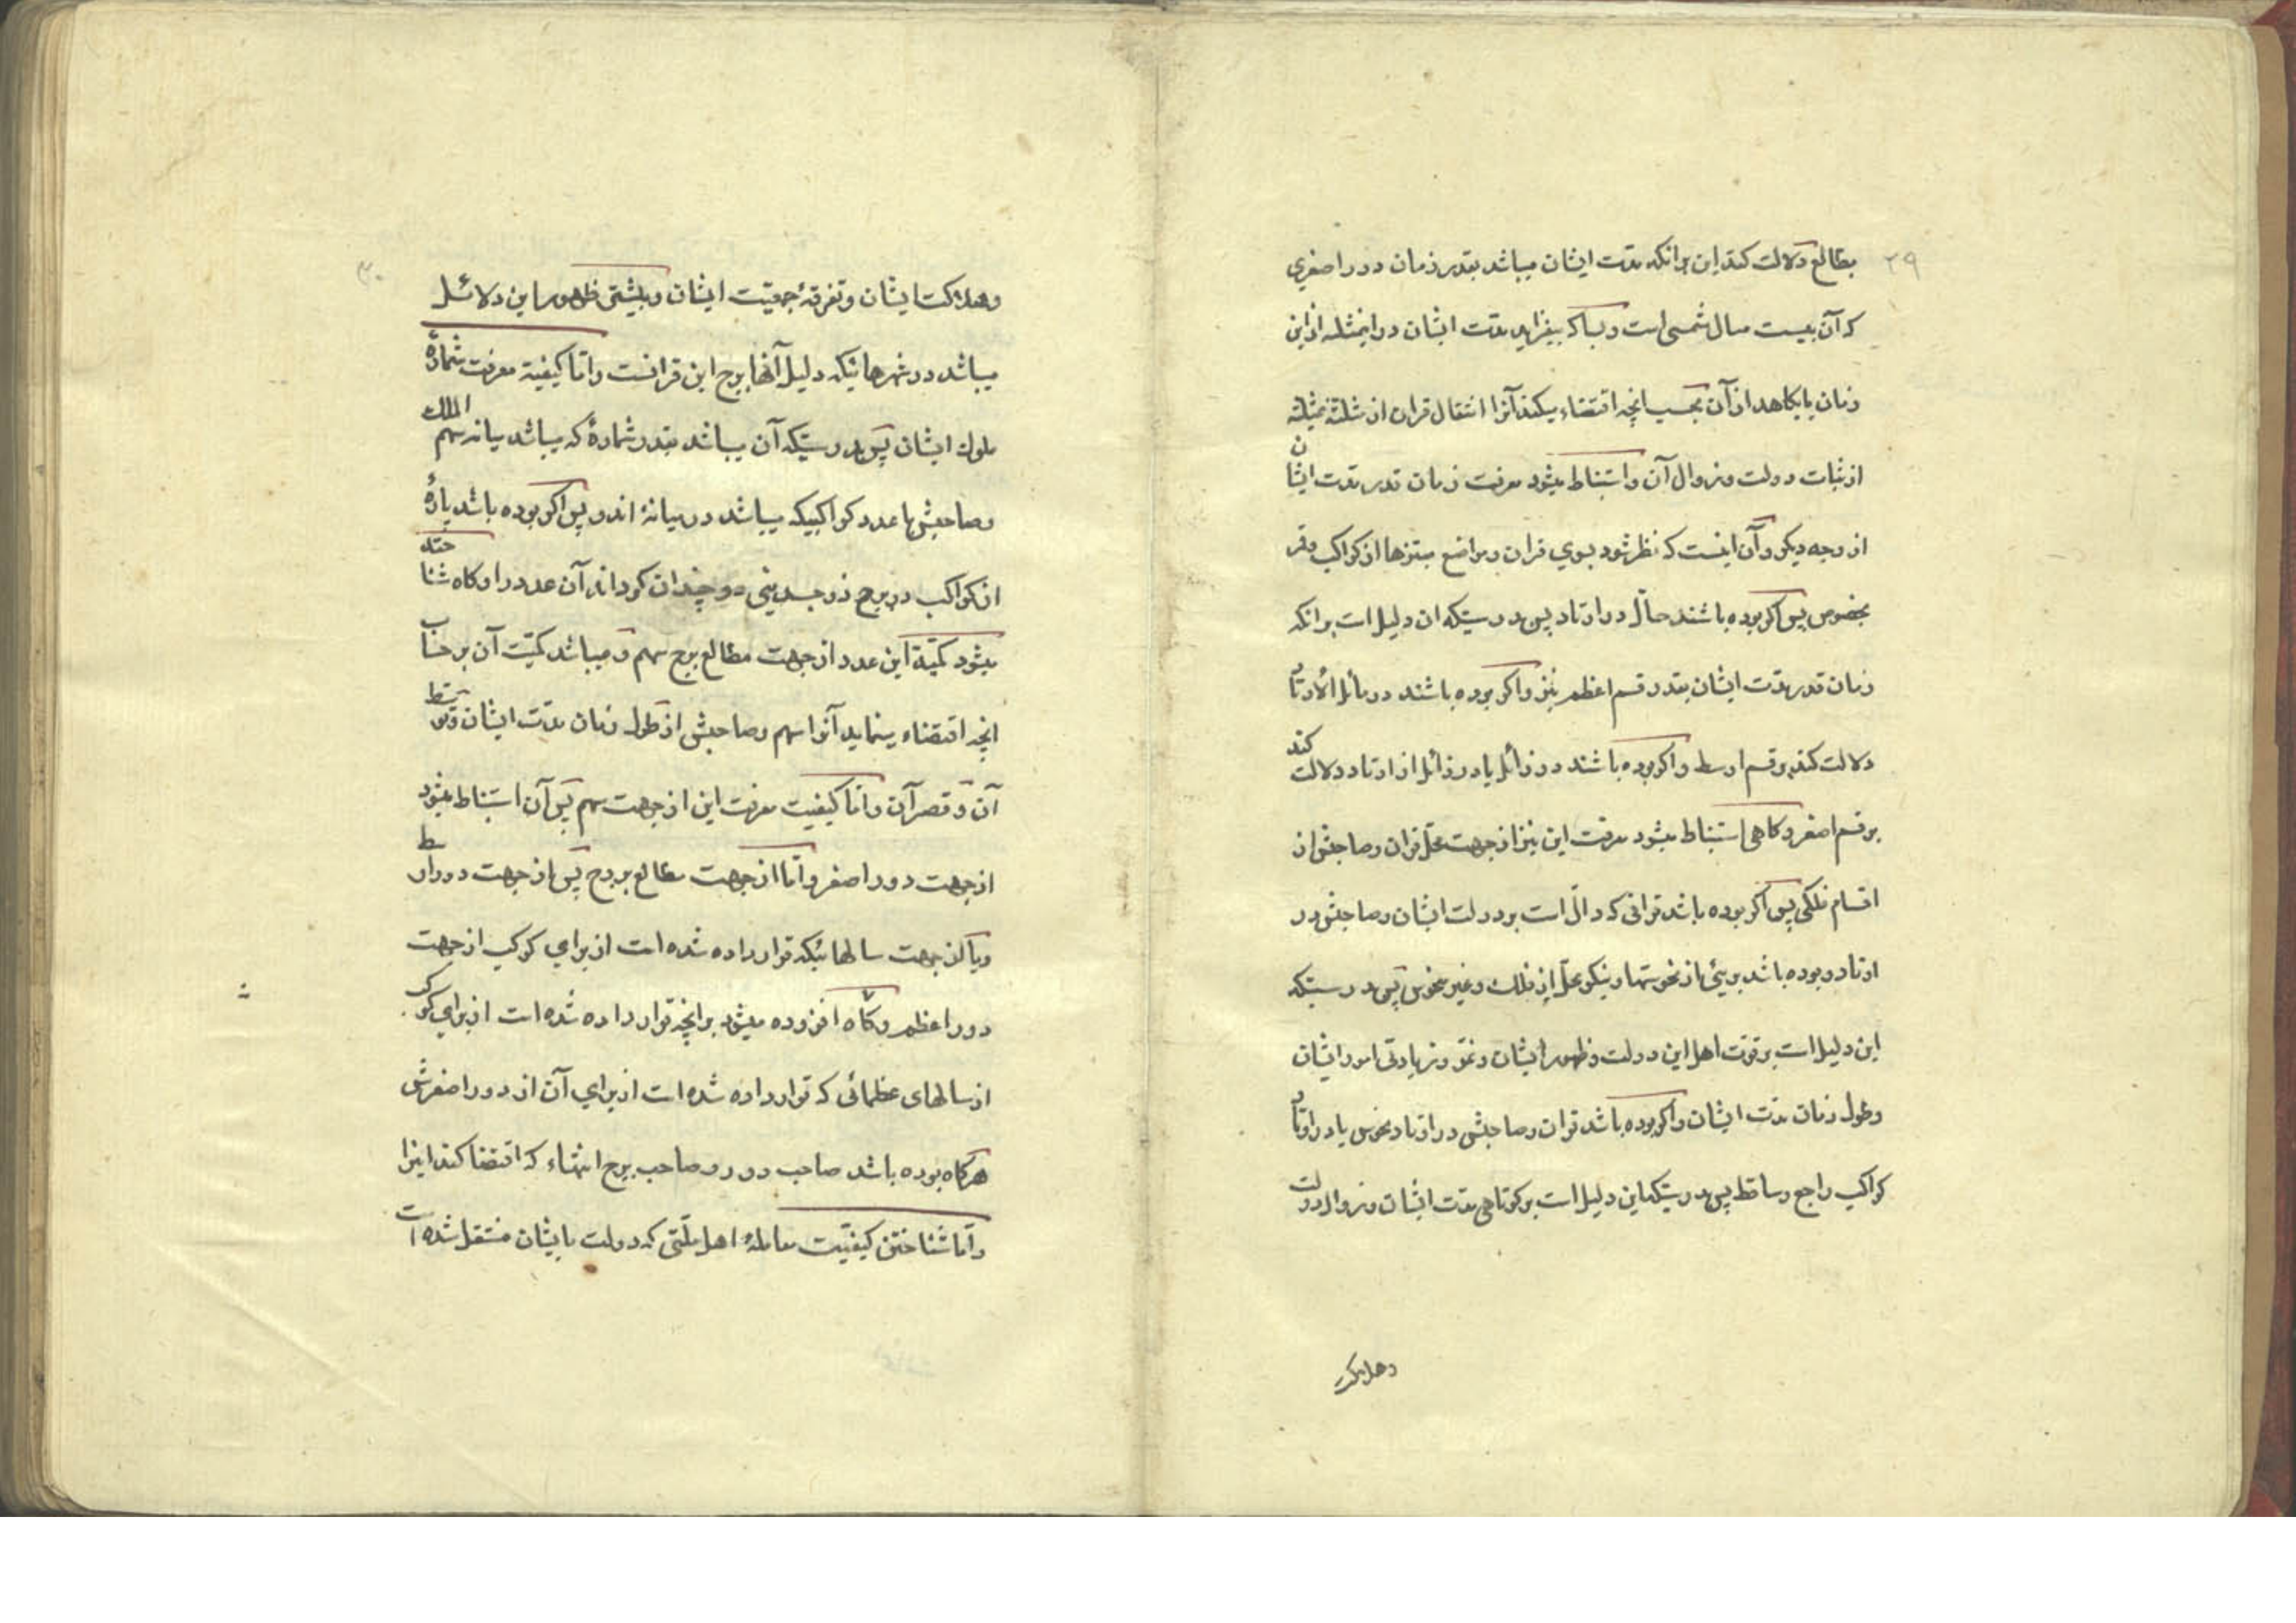 ۲۹
بطالع دلالت کند این برانکه مدت ایشان میباشد بقدر زمان دور اصغری
که آن بیست سال شمسی است و بسا که بیفزاید مدت ایشان در اینمثلثه از این
زمان یا بکاهد از آن بحسب انچه اقتضاء میکند آنرا انتقال قران از مثلثه بمثلثه
از ثبات دولت و زوال آن و استنباط میشود معرفت زمان قدر مدت ایشان
از وجه دیگر و آن اینست که نظر شود بسوی قران و مواضع مبتزها از کواکب و قمر
بخصوص پس اگر بوده باشند حالّ در اوتاد پس بدرستیکه ان دلیل است برانکه
زمان قدر مدّت ایشان بقدر قسم اعظم نیز و اگر بوده باشند در مائل الأوتاد
دلالت کند بر قسم اوسط و اگر بوده باشند در زائل یا در زائل از اوتاد دلالت کند
بر قسم اصغر و گاهی استنباط میشود معرفت این نیز از جهت محلّ قران و صاحبش از
اقسام فلکی پس اگر بوده باشد قرانی که دالّ است بر دولت ایشان و صاحبش در
اوتاد و بوده باشد بریئ از نحوستها و نیکو محلّ از فلک و غیر منحوس پس بدرستیکه
این دلیل است بر قوّت اهل این دولت و ظهور ایشان و نموّ و زیادتی امور ایشان
و طول زمان مدّت ایشان و اگر بوده باشد قران و صاحبش در اوتاد و نحوس یا در اوتاد
کواکب راجع و ساقط پس بدرستیکه این دلیل است بر کوتاهی مدّت ایشان و زوال دولت
و هلاکت
۳۰
و هلاکت ایشان و تفرقهٔ جمعیّت ایشان و بیشتی ظهور این دلائل
میباشد در شهرهائیکه دلیل آنها برج این قرانست و امّا کیفیة معرفت شمارهٔ
ملوک ایشان پس بدرستیکه آن میباشد بقدر شمارهٔ که میباشد میانه سهم الملک
و صاحبش با عدد کواکبیکه میباشد در میانهٔ اندو پس اگر بوده باشد پارهٔ
از کواکب در برج ذوجسدینی دوچندان گرداند آن عدد را و گاه شناخته
میشود کمیّة این عدد از جهت مطالع برج سهم و میباشد کمیّت آن بر حساب
انچه اقتضاء مینماید آنرا سهم و صاحبش از طول زمان مدّت ایشان و توسّط
آن و قصر آن و امّا کیفیت معرفت این از جهت سهم پس آن استنباط میشود
از جهت دور اصغر و امّا از جهت مطالع بروج پس از جهت دور اوسط
و یا از جهت سالهائیکه قرار داده شده است از برای کوکب از جهت
دور اعظم و گاه افزوده میشود بر انچه قرار داده شده است از برای کوکب
از سالهای عظمائی که قرار داده شده است از برای آن از دور اصغرش
هرگاه بوده باشد صاحب دور و صاحب برج انتهاء که اقتضا کند اینرا
و امّا شناختن کیفیّت معاملهٔ اهل ملّتی که دولت بایشان منتقل شده است